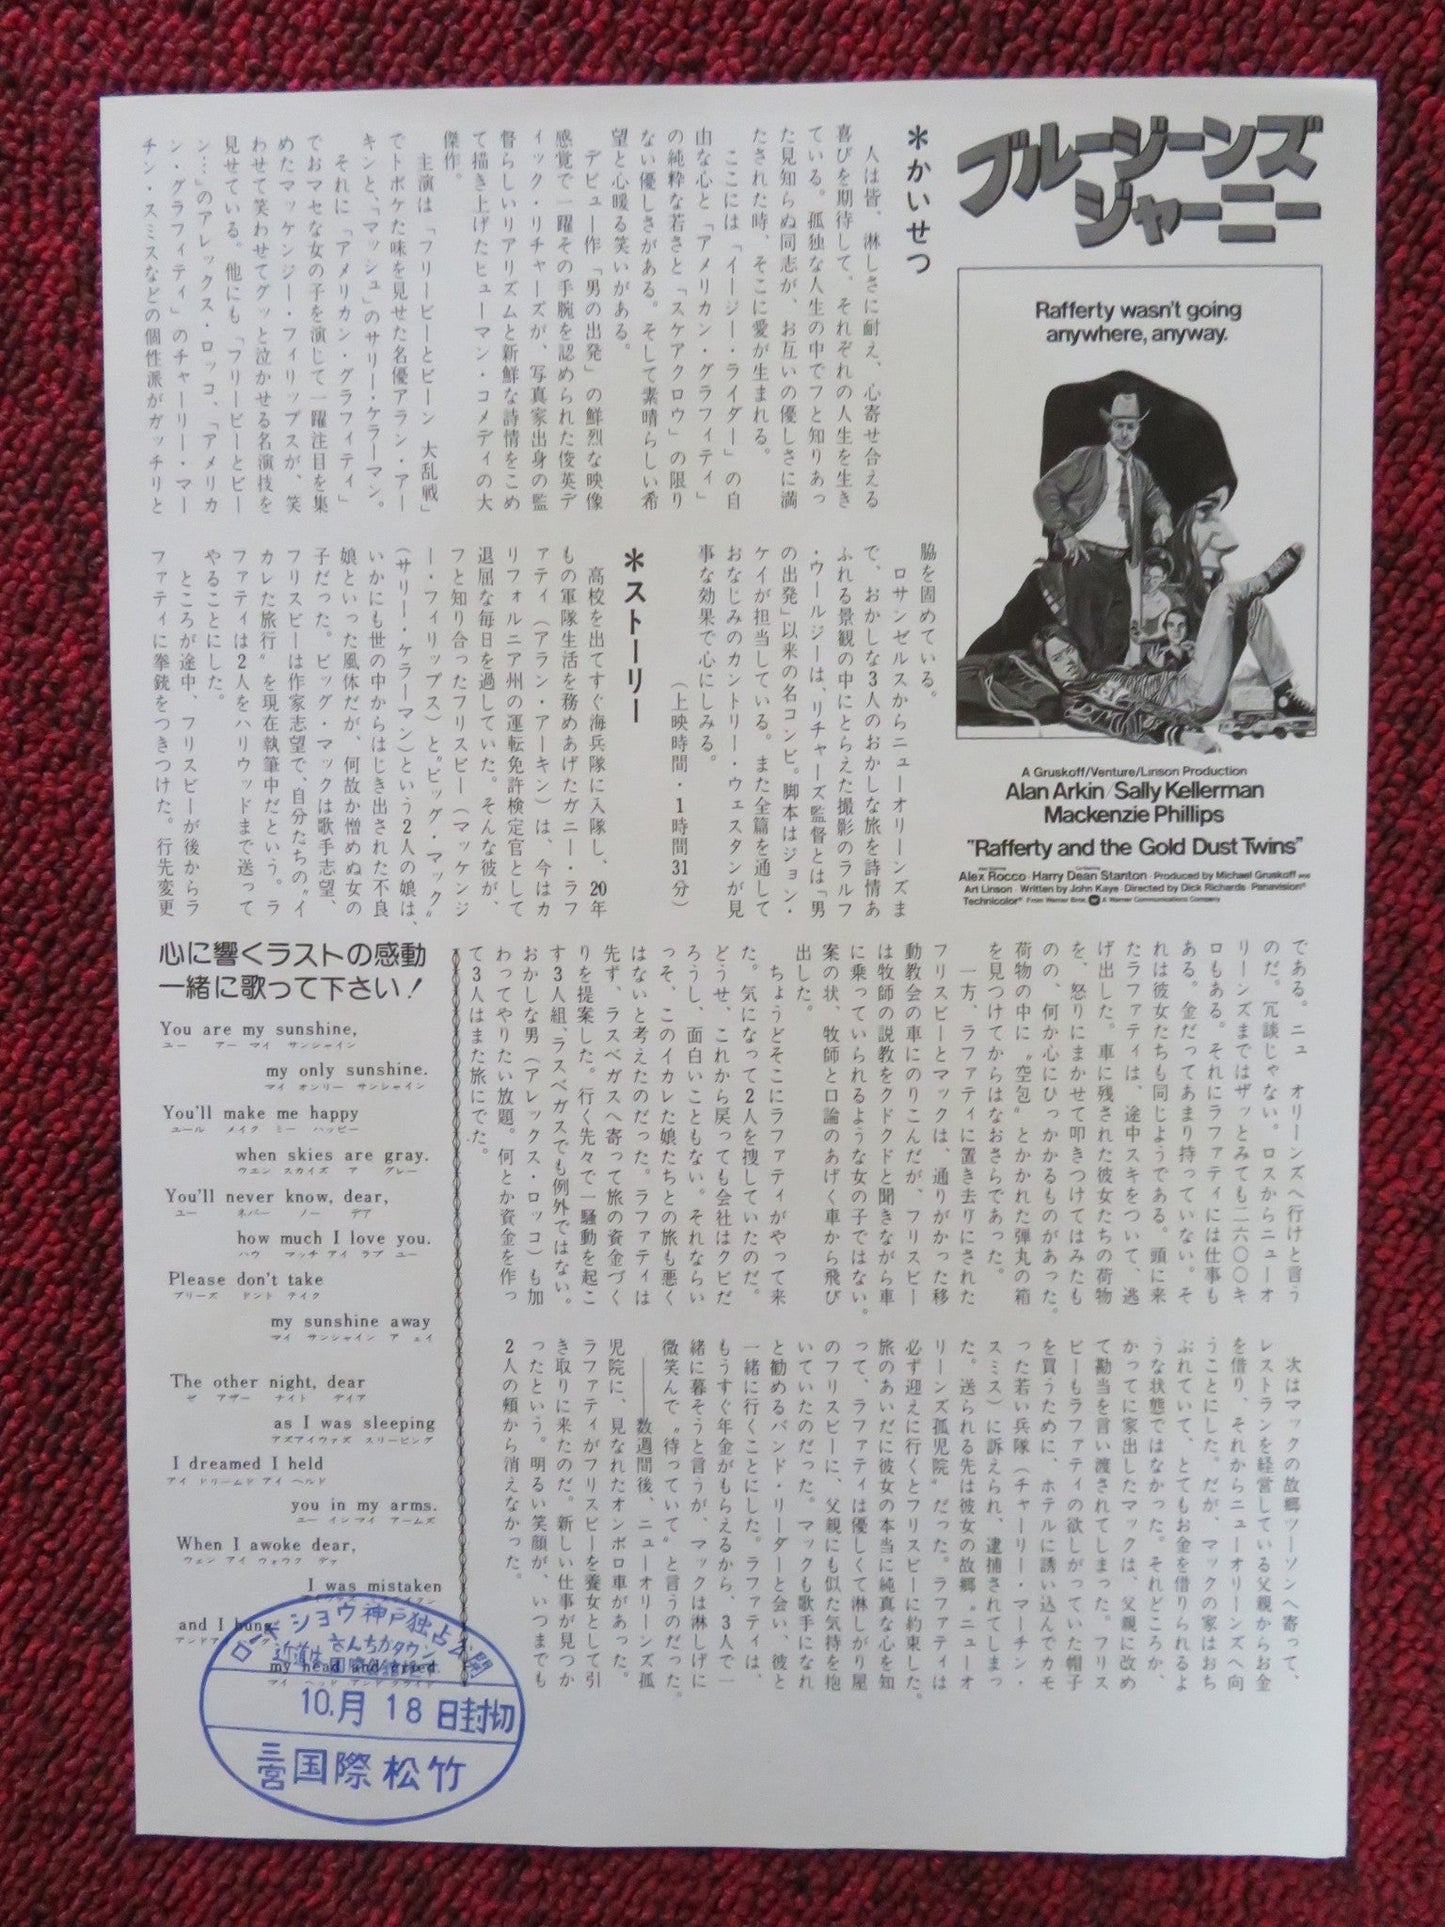 ブルージーンズ
ジャーニー
Rafferty wasn't going
anywhere, anyway.
A Gruskoff/Venture/Linson Production
Alan Arkin/Sally Kellerman
Mackenzie Phillips
"Rafferty and the Gold Dust Twins"
Alex Rocco · Harry Dean Stanton · Produced by Michael Gruskoff and
Art Linson · Written by John Kaye · Directed by Dick Richards · Panavision®
Technicolor® From Warner Bros. A Warner Communications Company
＊かいせつ
人は皆、淋しさに耐え、心寄せ合える
喜びを期待して、それぞれの人生を生き
ている。孤独な人生の中でフと知りあっ
た見知らぬ同志が、お互いの優しさに満
たされた時、そこに愛が生まれる。
ここには「イージー・ライダー」の自
由な心と「アメリカン・グラフィティ」
の純粋な若さと「スケアクロウ」の限り
ない優しさがある。そして素晴らしい希
望と心暖る笑いがある。
デビュー作「男の出発」の鮮烈な映像
感覚で一躍その手腕を認められた俊英デ
ィック・リチャーズが、写真家出身の監
督らしいリアリズムと新鮮な詩情をこめ
て描き上げたヒューマン・コメディの大
傑作。
主演は「フリービーとビーン 大乱戦」
でトボケた味を見せた名優アラン・アー
キンと、「マッシュ」のサリー・ケラーマン。
それに「アメリカン・グラフィティ」
でおマセな女の子を演じて一躍注目を集
めたマッケンジー・フィリップスが、笑
わせて笑わせてグッと泣かせる名演技を
見せている。他にも「フリービーとビー
ン…」のアレックス・ロッコ、「アメリカ
ン・グラフィティ」のチャーリー・マー
チン・スミスなどの個性派がガッチリと
脇を固めている。
ロサンゼルスからニューオリーンズま
で、おかしな3人のおかしな旅を詩情あ
ふれる景観の中にとらえた撮影のラルフ
・ウールジーは、リチャーズ監督とは「男
の出発」以来の名コンビ。脚本はジョン・
ケイが担当している。また全篇を通して
おなじみのカントリー・ウェスタンが見
事な効果で心にしみる。
（上映時間・1時間31分）
＊ストーリー
高校を出てすぐ海兵隊に入隊し、20年
もの軍隊生活を務めあげたガニー・ラフ
ァティ（アラン・アーキン）は、今はカ
リフォルニア州の運転免許検定官として
退屈な毎日を過していた。そんな彼が、
フと知り合ったフリスビー（マッケンジ
ー・フィリップス）と〝ビッグ・マック〟
（サリー・ケラーマン）という2人の娘は、
いかにも世の中からはじき出された不良
娘といった風体だが、何故か憎めぬ女の
子だった。ビッグ・マックは歌手志望、
フリスビーは作家志望で、自分たちの〝イ
カレた旅行〟を現在執筆中だという。ラ
ファティは2人をハリウッドまで送って
やることにした。
ところが途中、フリスビーが後からラ
ファティに拳銃をつきつけた。行先変更
である。ニュ オリーンズへ行けと言う
のだ。冗談じゃない。ロスからニューオ
リーンズまではザッとみても二六〇〇キ
ロもある。それにラファティには仕事も
ある。金だってあまり持っていない。そ
れは彼女たちも同じようである。頭に来
たラファティは、途中スキをついて、逃
げ出した。車に残された彼女たちの荷物
を、怒りにまかせて叩きつけてはみたも
のの、何か心にひっかかるものがあった。
荷物の中に〝空包〟とかかれた弾丸の箱
を見つけてからはなおさらであった。
一方、ラファティに置き去りにされた
フリスビーとマックは、通りがかった移
動教会の車にのりこんだが、フリスビー
は牧師の説教をクドクドと聞きながら車
に乗っていられるような女の子ではない。
案の状、牧師と口論のあげく車から飛び
出した。
ちょうどそこにラファティがやって来
た。気になって2人を捜していたのだ。
どうせ、これから戻っても会社はクビだ
ろうし、面白いこともない。それならい
っそ、このイカレた娘たちとの旅も悪く
はないと考えたのだった。ラファティは
先ず、ラスベガスへ寄って旅の資金づく
りを提案した。行く先々で一騒動を起こ
す3人組、ラスベガスでも例外ではない。
おかしな男（アレックス・ロッコ）も加
わってやりたい放題。何とか資金を作っ
て3人はまた旅にでた。
次はマックの故郷ツーソンへ寄って、
レストランを経営している父親からお金
を借り、それからニューオリーンズへ向
うことにした。だが、マックの家はおち
ぶれていて、とてもお金を借りられるよ
うな状態ではなかった。それどころか、
かってに家出したマックは、父親に改め
て勘当を言い渡されてしまった。フリス
ビーもラファティの欲しがっていた帽子
を買うために、ホテルに誘い込んでカモ
った若い兵隊（チャーリー・マーチン・
スミス）に訴えられ、逮捕されてしまっ
た。送られる先は彼女の故郷〝ニューオ
リーンズ孤児院〟だった。ラファティは
必ず迎えに行くとフリスビーに約束した。
旅のあいだに彼女の本当に純真な心を知
って、ラファティは優しくて淋しがり屋
のフリスビーに、父親にも似た気持を抱
いていたのだった。マックも歌手になれ
と勧めるバンド・リーダーと会い、彼と
一緒に行くことにした。ラファティは、
もうすぐ年金がもらえるから、3人で一
緒に暮そうと言うが、マックは淋しげに
微笑んで〝待っていて〟と言うのだった。
――数週間後、ニューオリーンズ孤
児院に、見なれたオンボロ車があった。
ラファティがフリスビーを養女として引
き取りに来たのだ。新しい仕事が見つか
ったという。明るい笑顔が、いつまでも
2人の頬から消えなかった。
心に響くラストの感動
一緒に歌って下さい！
You are my sunshine,
ユー アー マイ サンシャイン
my only sunshine.
マイ オンリー サンシャイン
You'll make me happy
ユール メイク ミー ハッピー
when skies are gray.
ウエン スカイズ ア グレー
You'll never know, dear,
ユー ネバー ノー デア
how much I love you.
ハウ マッチ アイ ラブ ユー
Please don't take
プリーズ ドント テイク
my sunshine away
マイ サンシャイン ア ェイ
The other night, dear
ゼ アザー ナイト デイア
as I was sleeping
アズアイウァズ スリーピング
I dreamed I held
アイ ドリームド アイ ヘルド
you in my arms.
ユー インマイ アームズ
When I awoke dear,
ウェン アイ ウォウク デァ
I was mistaken
and I hung
my head and cried
マイ ヘッド アンド クライド
ロードショウ神戸独占公開
さんちかタウン
10.月18日封切
三宮国際松竹